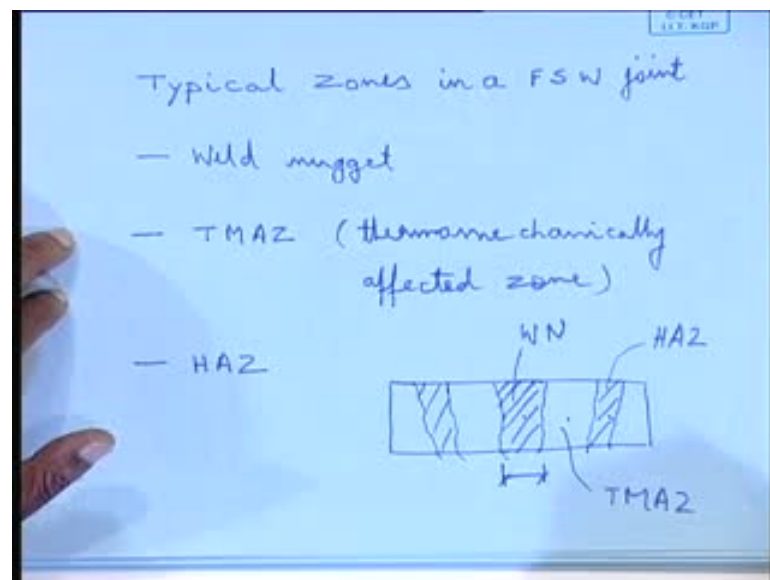 Typical zones in a FSW joint
— Weld nugget
— TMAZ (thermomechanically
affected zone)
— HAZ
WN
HAZ
TMAZ